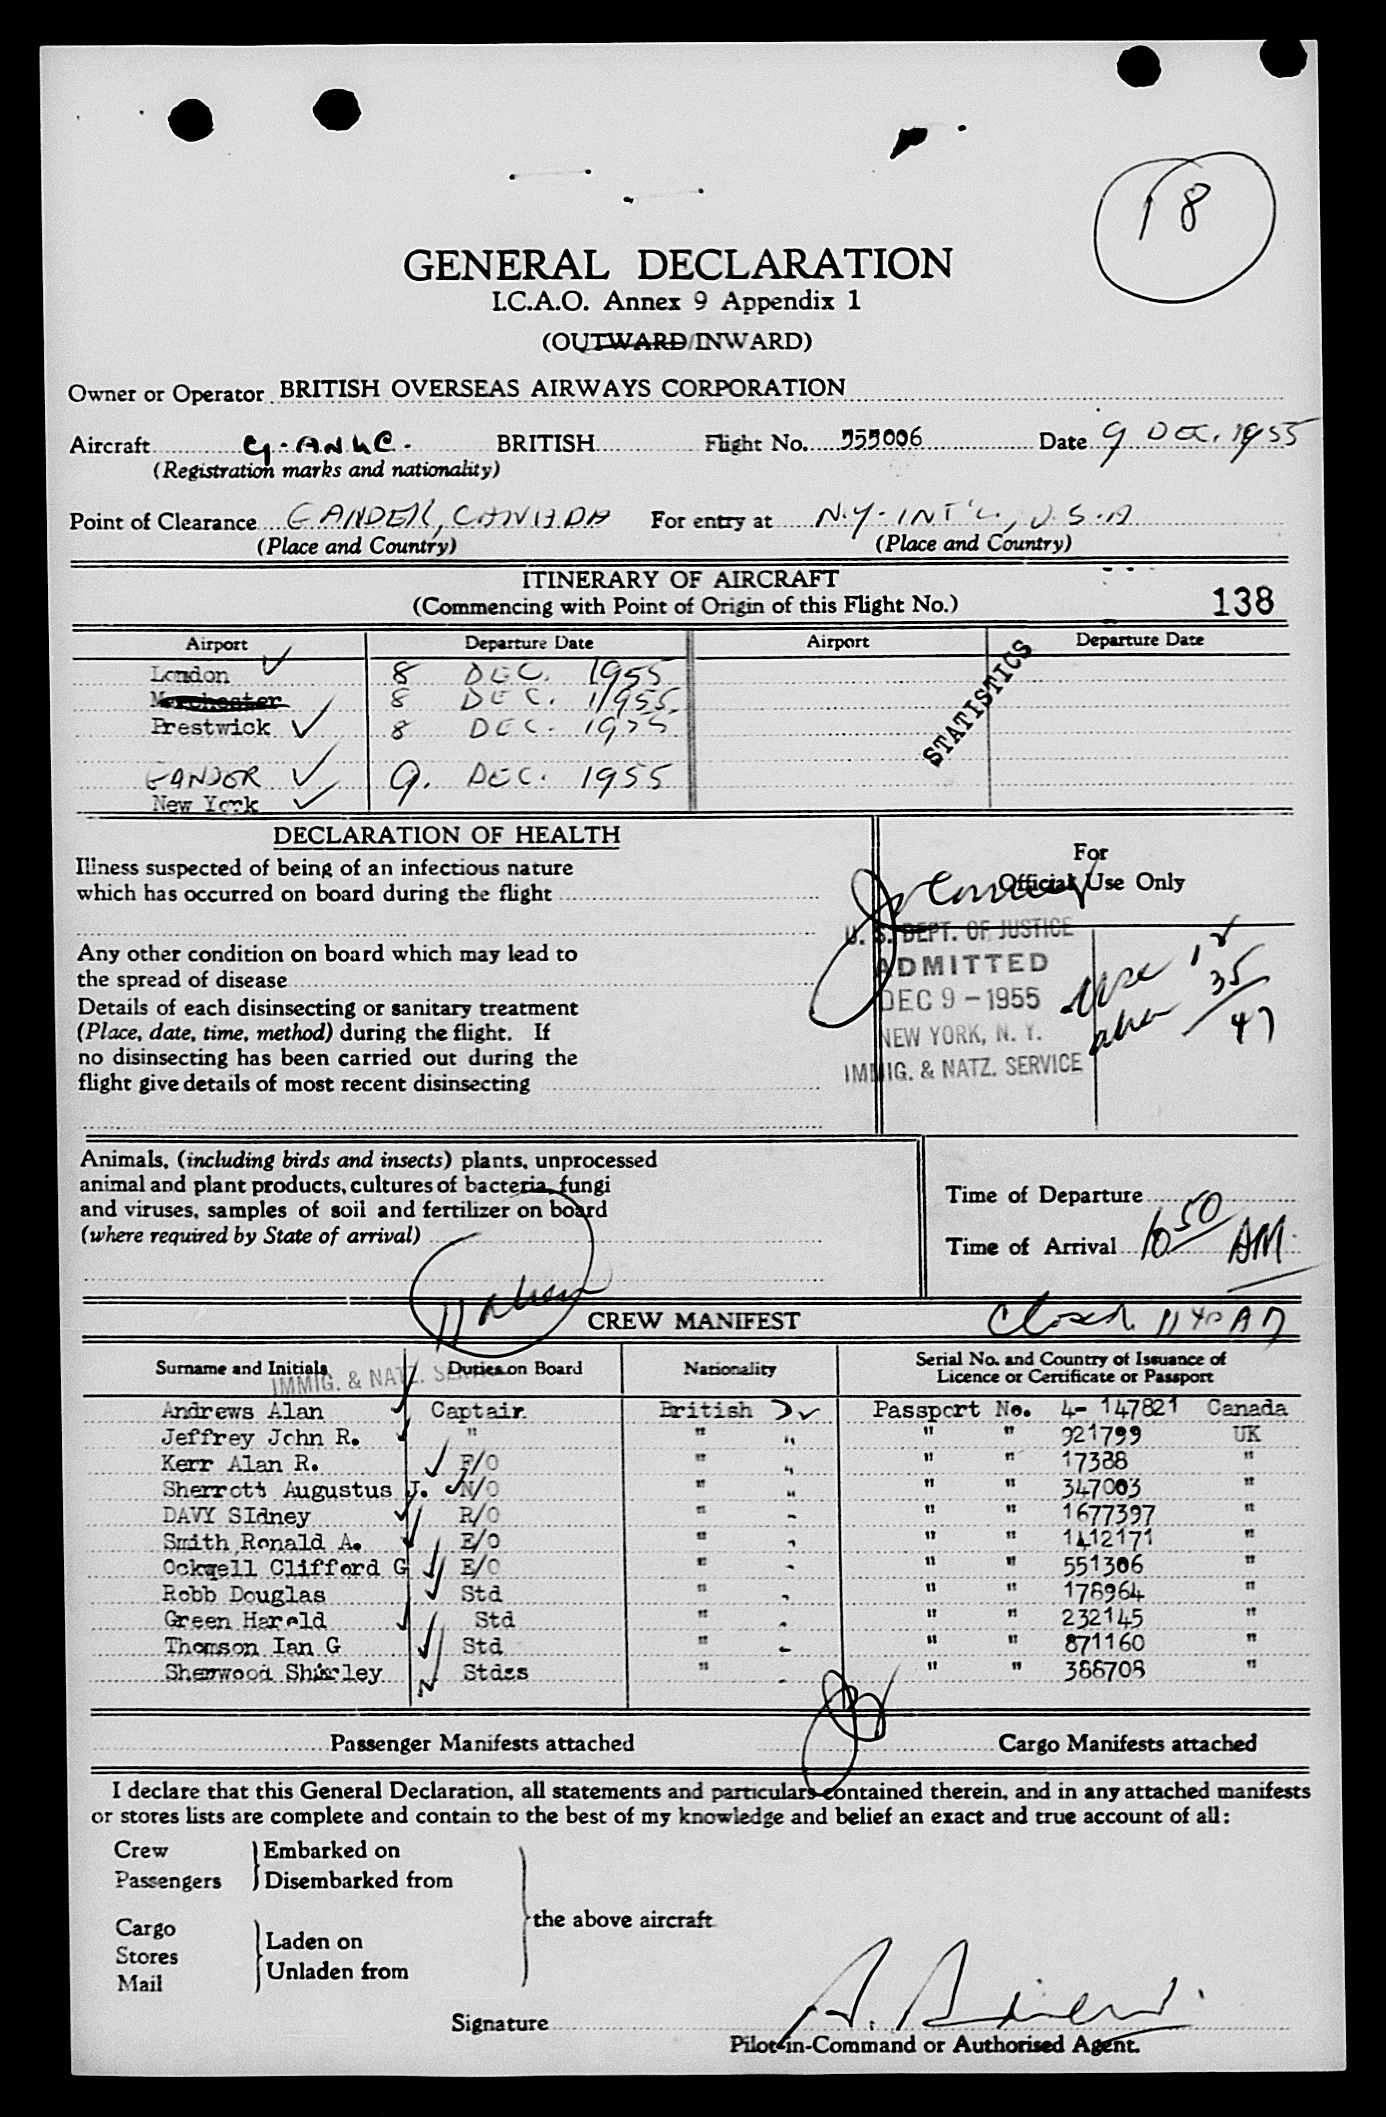 18
GENERAL DECLARATION
I.C.A.O. Annex 9 Appendix 1
(OUTWARD/INWARD)
Owner or Operator BRITISH OVERSEAS AIRWAYS CORPORATION
Aircraft G-ANUC. BRITISH Flight No. 555006 Date 9 DEC. 1955
(Registration marks and nationality)
Point of Clearance GANDER, CANADA For entry at N.Y. INT'L, U.S.A
(Place and Country) (Place and Country)
ITINERARY OF AIRCRAFT
(Commencing with Point of Origin of this Flight No.) 138
Airport Departure Date Airport Departure Date
London 8 DEC. 1955
Manchester 8 DEC. 1955
Prestwick 8 DEC. 1955
STATISTICS
GANDER 9. DEC. 1955
New York
DECLARATION OF HEALTH
Illness suspected of being of an infectious nature
which has occurred on board during the flight
For
Official Use Only
Any other condition on board which may lead to
the spread of disease
Details of each disinsecting or sanitary treatment
(Place, date, time, method) during the flight. If
no disinsecting has been carried out during the
flight give details of most recent disinsecting
U. S. DEPT. OF JUSTICE
ADMITTED
DEC 9 - 1955
NEW YORK, N. Y.
IMMIG. & NATZ. SERVICE
usc 12
alien 35
47
Animals, (including birds and insects) plants, unprocessed
animal and plant products, cultures of bacteria, fungi
and viruses, samples of soil and fertilizer on board
(where required by State of arrival)
Time of Departure
Time of Arrival 10 50 AM
11 alien
CREW MANIFEST Closed 11 40 AM
Surname and Initials Duties on Board Nationality Serial No. and Country of Issuance of
Licence or Certificate or Passport
IMMIG. & NATZ. SE
Andrews Alan Captain British Passport No. 4- 147821 Canada
Jeffrey John R. " " " " 921799 UK
Kerr Alan R. F/O " " " 17388 "
Sherrott Augustus J. N/O " " " 347003 "
DAVY SIdney R/O " " " 1677397 "
Smith Ronald A. E/O " " " 1412171 "
Ockwell Clifford G E/O " " " 551306 "
Robb Douglas Std " " " 178964 "
Green Harold Std " " " 232145 "
Thomson Ian G Std " " " 871160 "
Sherwood Shirley Stdss " " " 388708 "
Passenger Manifests attached Cargo Manifests attached
I declare that this General Declaration, all statements and particulars contained therein, and in any attached manifests
or stores lists are complete and contain to the best of my knowledge and belief an exact and true account of all:
Crew Embarked on
Passengers Disembarked from
the above aircraft
Cargo
Stores Laden on
Mail Unladen from
Signature
Pilot-in-Command or Authorised Agent.